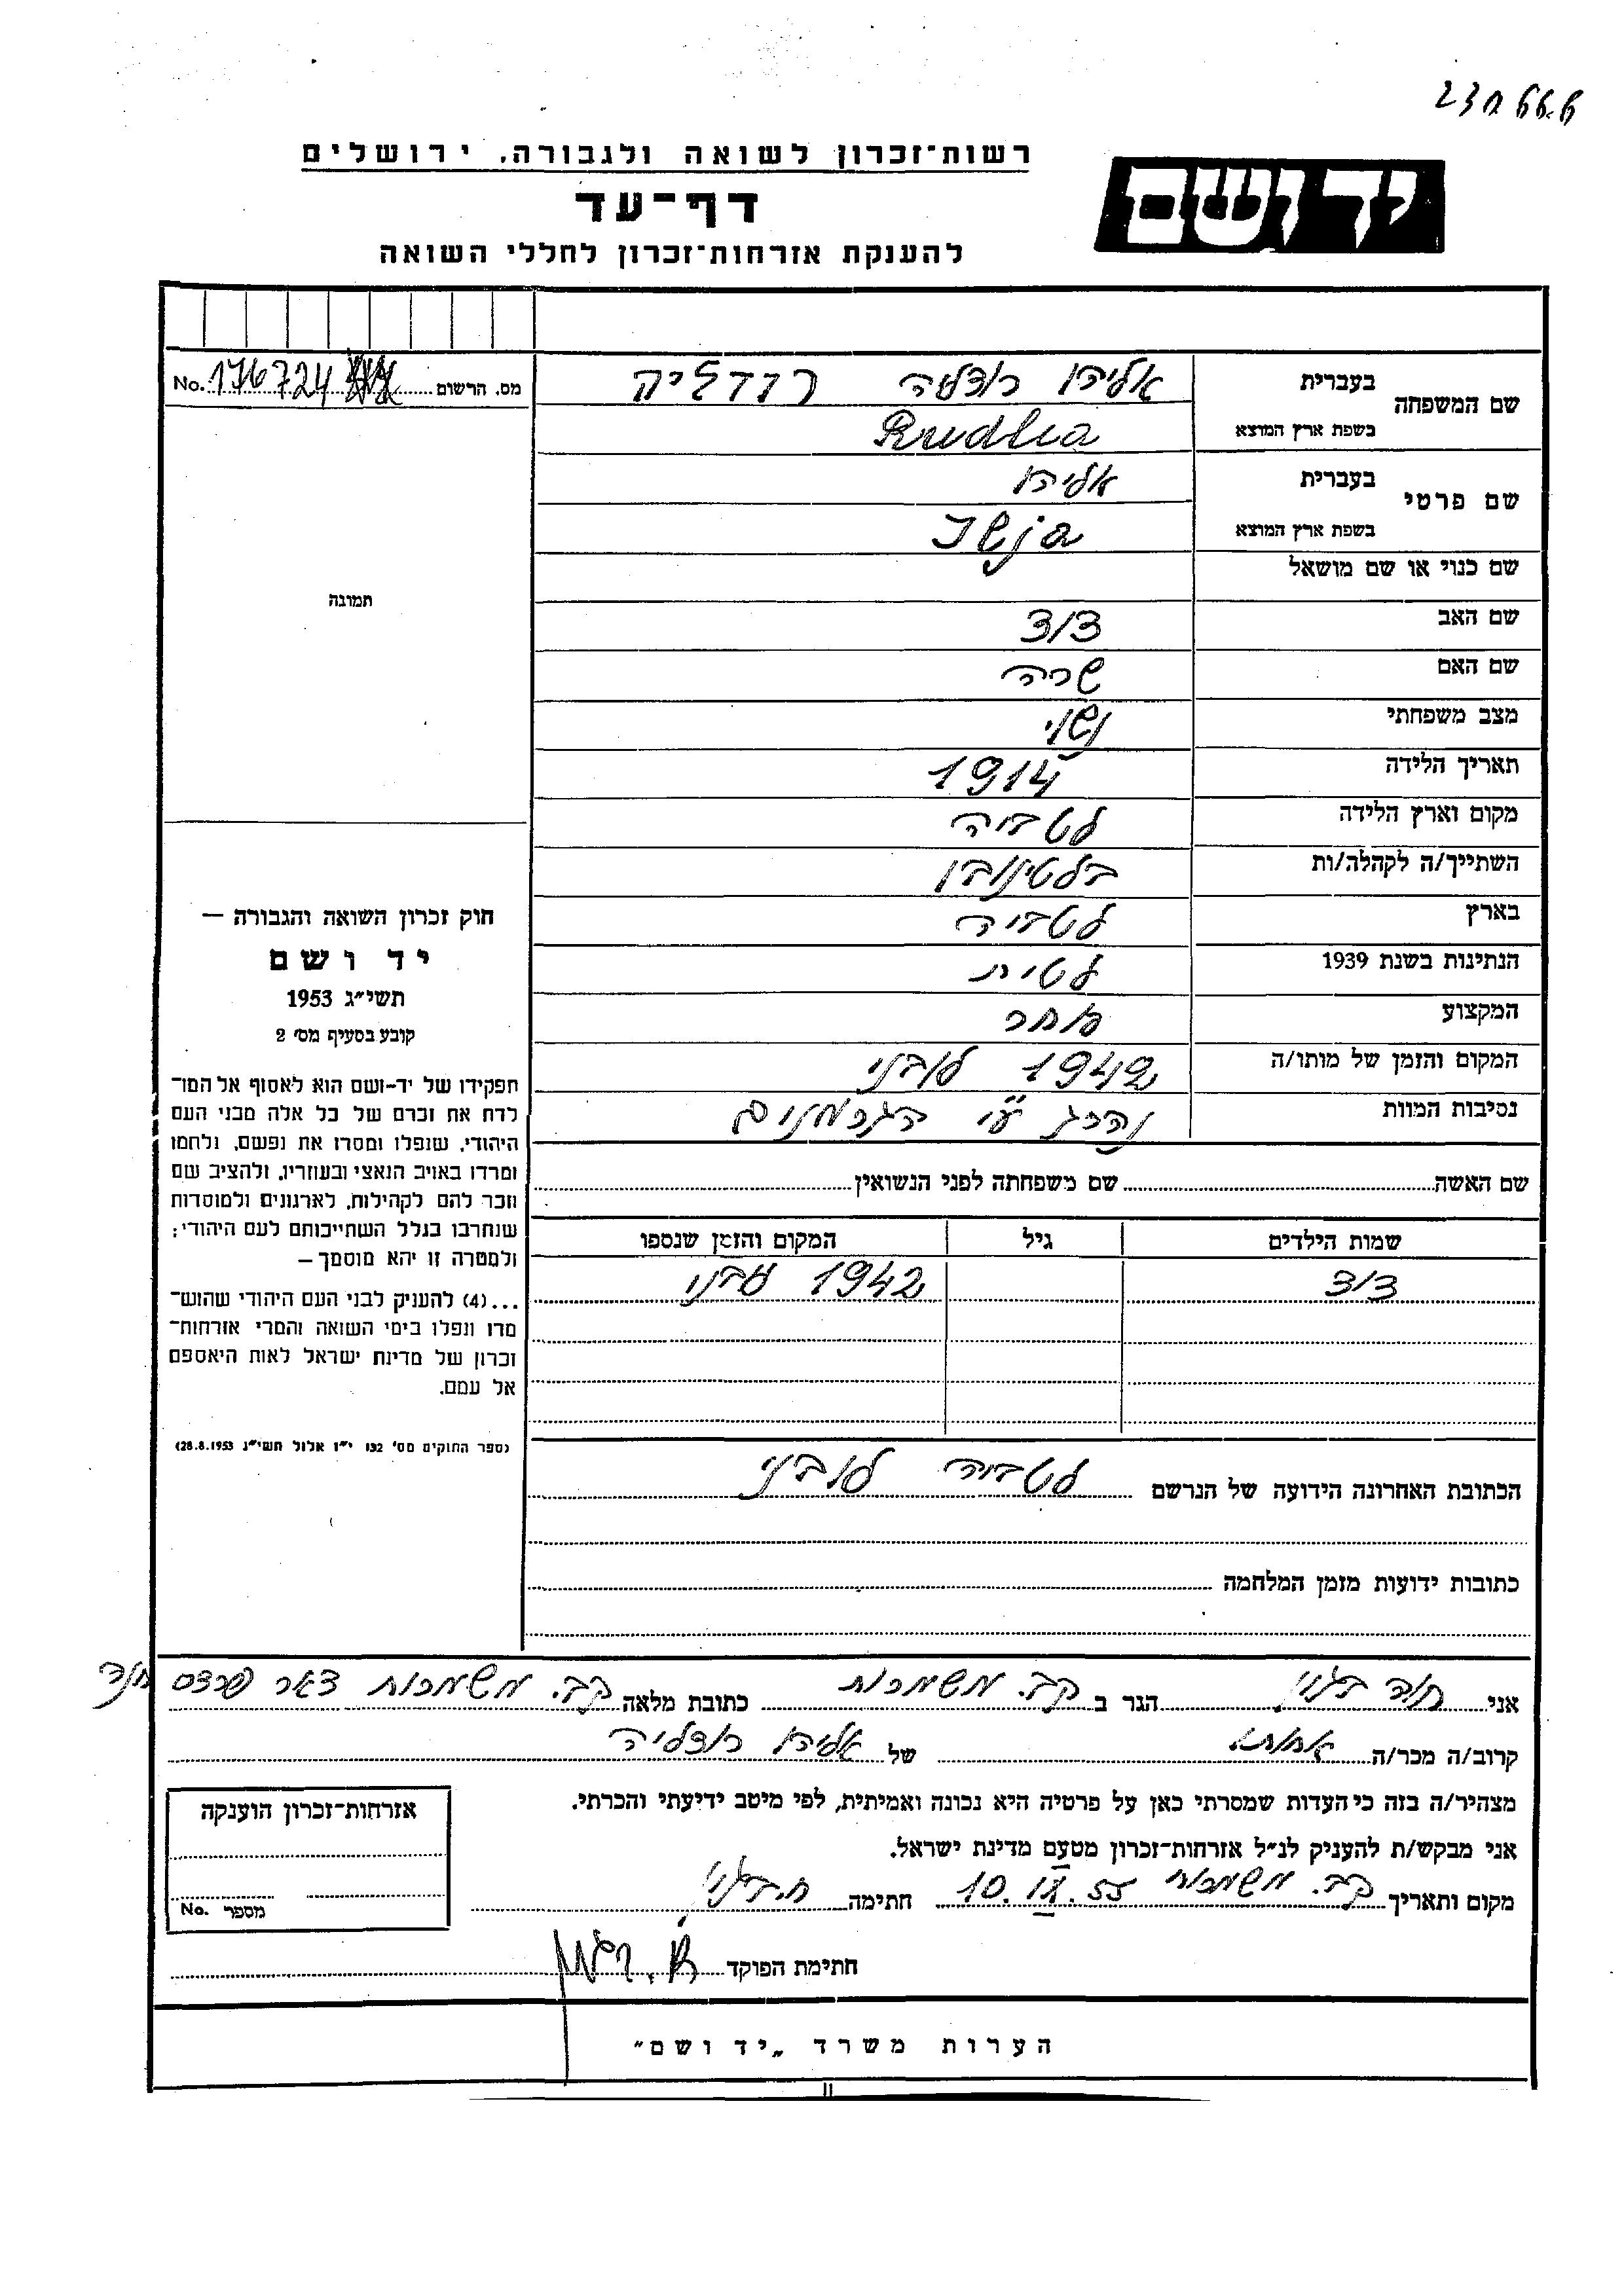 רשות-זכרון לשואה ולגבורה, ירושלים
יד ושם
דף-עד
להענקת אזרחות-זכרון לחללי השואה
מס. הרשום No. 176724
שם המשפחה
בעברית אליהו רודליה
בשפת ארץ המוצא Rudlia
שם פרטי
בעברית אליהו
בשפת ארץ המוצא
שם כנוי או שם מושאל
שם האב דוד
שם האם שרה
מצב משפחתי נשוי
תאריך הלידה 1914
מקום וארץ הלידה לטביה
השתייך/ה לקהלה/ות
בארץ לטביה
הנתינות בשנת 1939 לטבית
המקצוע סוחר
המקום והזמן של מותו/ה 1942
נסיבות המוות נהרג ע"י הגרמנים
שם האשה שם משפחתה לפני הנשואין
שמות הילדים גיל המקום והזמן שנספו
דוד 1942
הכתובת האחרונה הידועה של הנרשם לטביה
כתובות ידועות מזמן המלחמה
תמונה
חוק זכרון השואה והגבורה —
יד ושם
תשי"ג 1953
קובע בסעיף מס' 2
תפקידו של יד-ושם הוא לאסוף אל המו־
לדת את זכרם של כל אלה מבני העם
היהודי, שנפלו ומסרו את נפשם, נלחמו
ומרדו באויב הנאצי ובעוזריו, ולהציב שם
וזכר להם לקהילות, לארגונים ולמוסדות
שנחרבו בגלל השתייכותם לעם היהודי;
ולמטרה זו יהא מוסמך —
...(4) להעניק לבני העם היהודי שהוש־
מדו ונפלו בימי השואה והמרי אזרחות־
זכרון של מדינת ישראל לאות היאספם
אל עמם.
(ספר החוקים מס' 132 י"ז אלול תשי"ג 28.8.1953)
אני חוה הגר ב קב. משמרות כתובת מלאה קב. משמרות דאר פרדס חנה
קרוב/ה מכר/ה אחותו של אליהו רודליה
מצהיר/ה בזה כי העדות שמסרתי כאן על פרטיה היא נכונה ואמיתית, לפי מיטב ידיעתי והכרתי.
אני מבקש/ת להעניק לנ"ל אזרחות-זכרון מטעם מדינת ישראל.
מקום ותאריך קב. משמרות 10.IX.55 חתימה
חתימת הפוקד
אזרחות-זכרון הוענקה
מספר No.
הערות משרד „יד ושם"